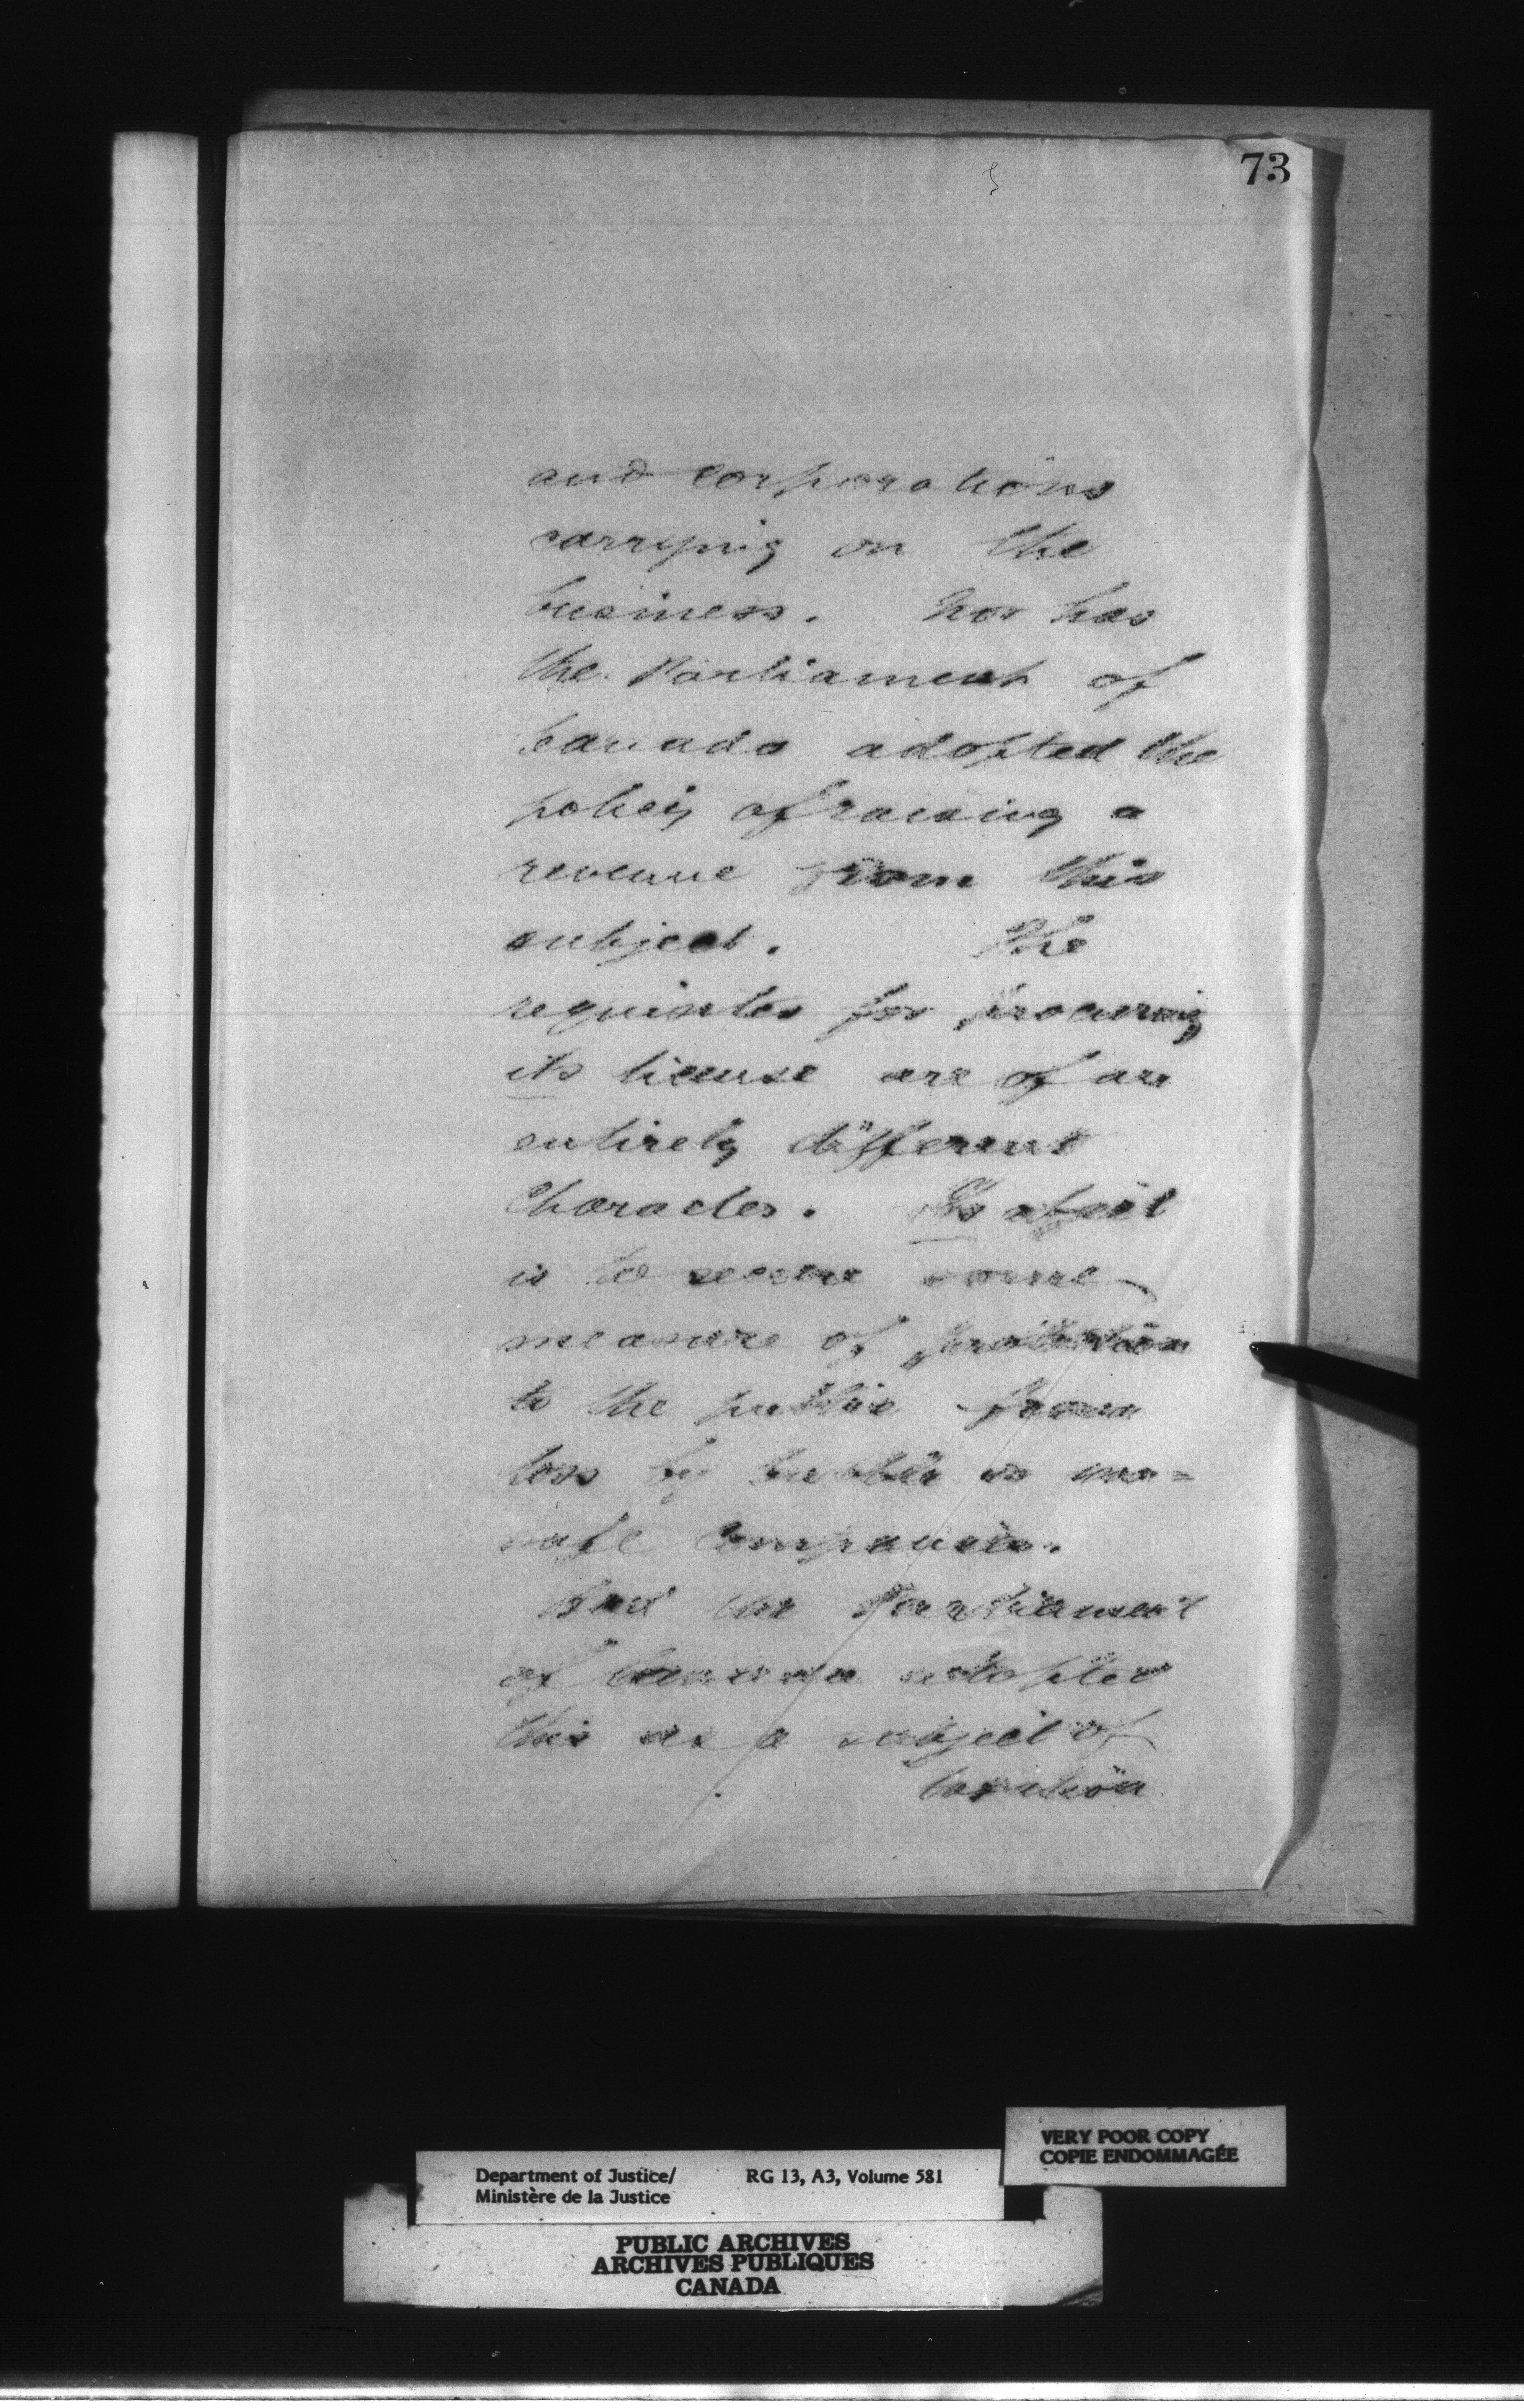 73
and Corporations
carrying on the
business. Nor has
the Parliament of
Canada adopted the
policy of raising a
revenue from this
subject. The
requisites for procuring
its license are of an
entirely different
Character. Its object
is to secure some
measure of protection
to the public from
loss by bubble or un=
safe Companies.
Had the Parliament
of Canada adopted
this as a subject of
taxation
VERY POOR COPY
COPIE ENDOMMAGÉE
Department of Justice/ RG 13, A3, Volume 581
Ministère de la Justice
PUBLIC ARCHIVES
ARCHIVES PUBLIQUES
CANADA